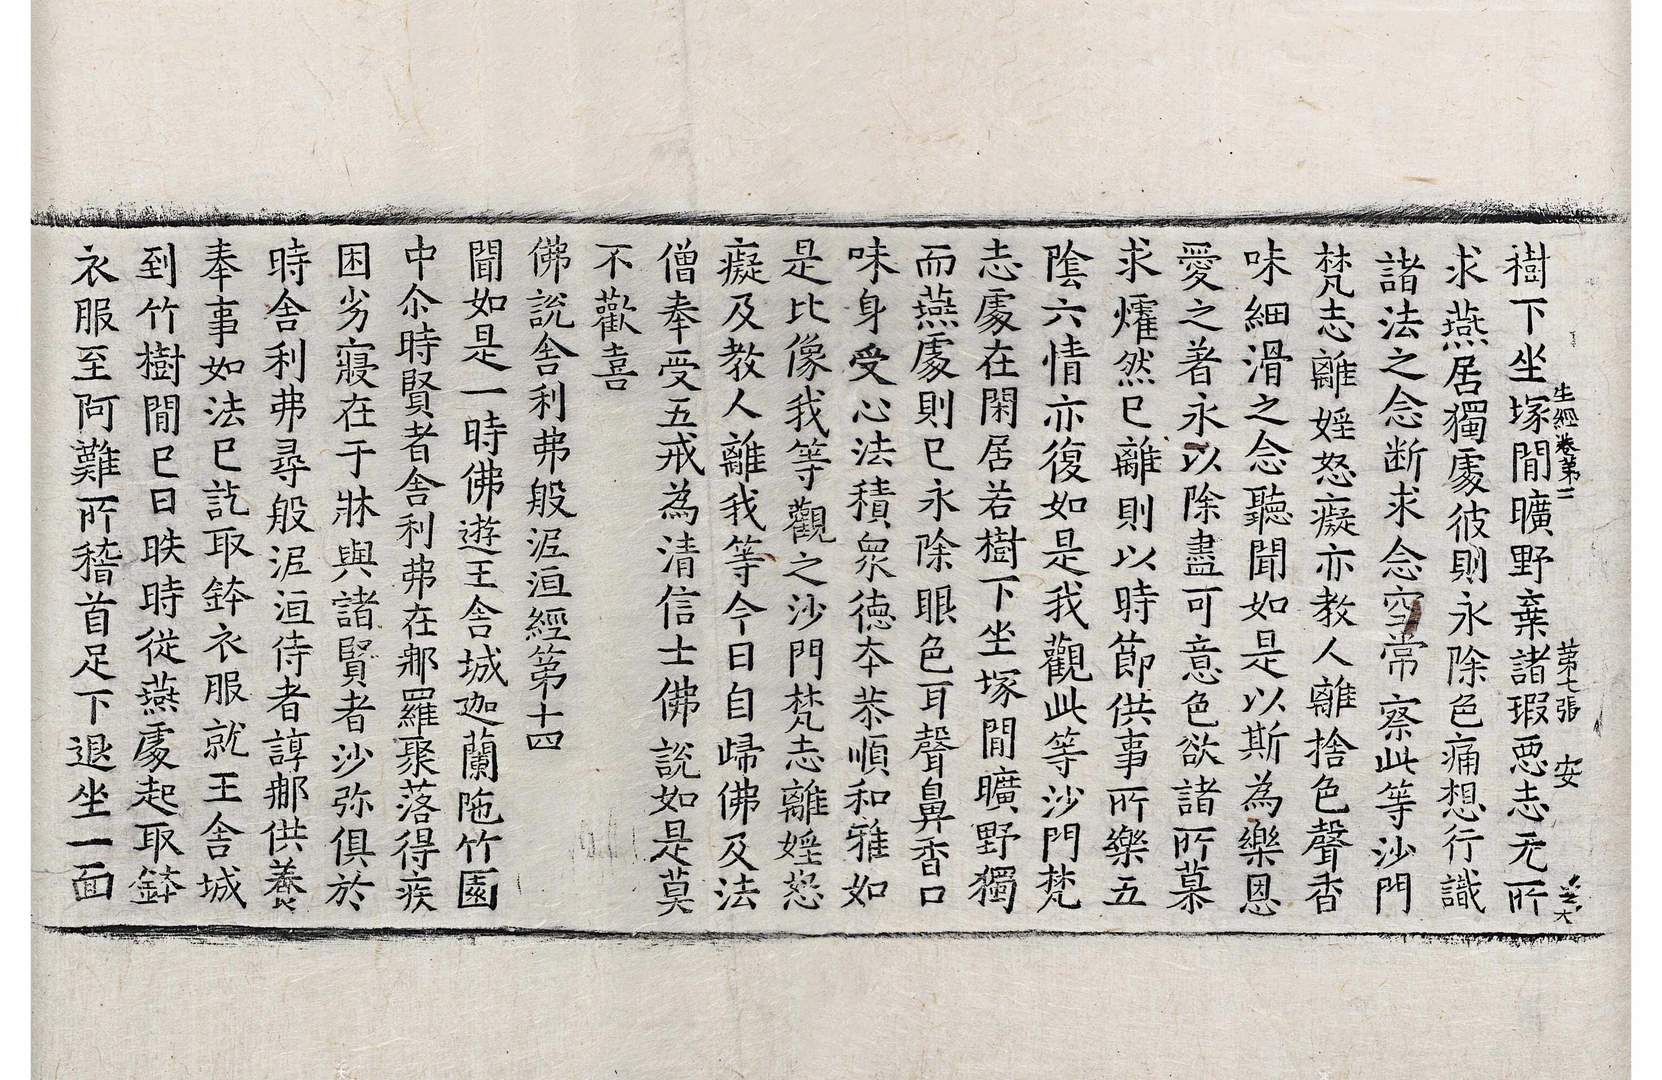 生經卷第二　第七張　安
樹下坐塚間曠野棄諸瑕惡志无所
求燕居獨處彼則永除色痛想行識
諸法之念断求念空常察此等沙門
梵志離婬怒癡亦教人離捨色聲香
味細滑之念聽聞如是以斯為樂恩
愛之著永以除盡可意色欲諸所慕
求燿然已離則以時節供事所樂五
陰六情亦復如是我觀此等沙門梵
志處在閑居若樹下坐塚間曠野獨
而燕處則已永除眼色耳聲鼻香口
味身受心法積衆德本恭順和雅如
是比像我等觀之沙門梵志離婬怒
癡及教人離我等今日自歸佛及法
僧奉受五戒為清信士佛說如是莫
不歡喜
佛說舍利弗般泥洹經第十四
聞如是一時佛遊王舍城迦蘭陁竹園
中尒時賢者舍利弗在郍羅聚落得疾
困劣寢在于牀與諸賢者沙弥俱於
時舍利弗尋般泥洹侍者諄郍供養
奉事如法已訖取鉢衣服就王舍城
到竹樹間已日昳時從燕處起取鉢
衣服至阿難所稽首足下退坐一面